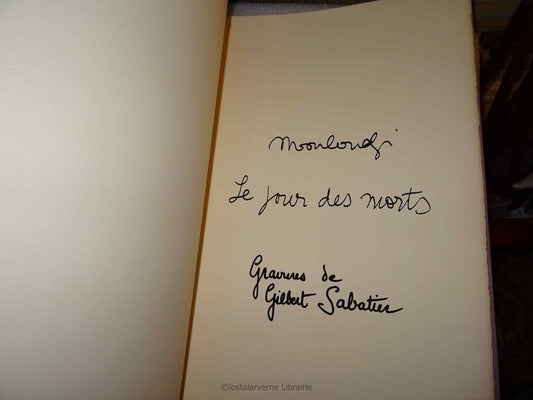 Mouloudji
Le jour des morts
Gravures de
Gilbert Sabatier
©lostalarverne Librairie